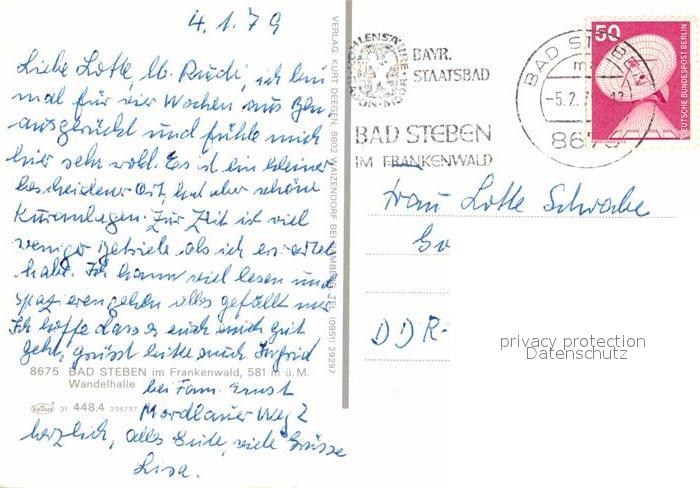 4.1.79
Liebe Lotte, lb. Rudi, ich bin
mal für vier Wochen aus Bln
ausgerückt und fühle mich
hier sehr wohl. Es ist ein kleiner
bescheidener Ort, hat aber schöne
Kuranlagen. Zur Zeit ist viel
weniger Betrieb als ich erwartet
habe. Ich kann viel lesen und
spazierengehen alles gefällt mir
Ich hoffe dass es euch auch gut
geht, grüsst bitte auch Ingrid
8675 BAD STEBEN im Frankenwald, 581 m ü.M.
Wandelhalle
bei Fam. Ernst
31 448.4 236737
Mordlauer Weg 2
herzlich, alles Gute, viele Grüsse
Lisa.
VERLAG KURT DEEGEN, 8602 WAIZENDORF BEI BAMBERG, TEL. (0951) 29297
BAYR.
STAATSBAD
BAD STEBEN
IM FRANKENWALD
BAD STEBEN
-5.2.
8675
50
DEUTSCHE BUNDESPOST BERLIN
Frau Lotte Schwabe
DDR-
privacy protection
Datenschutz